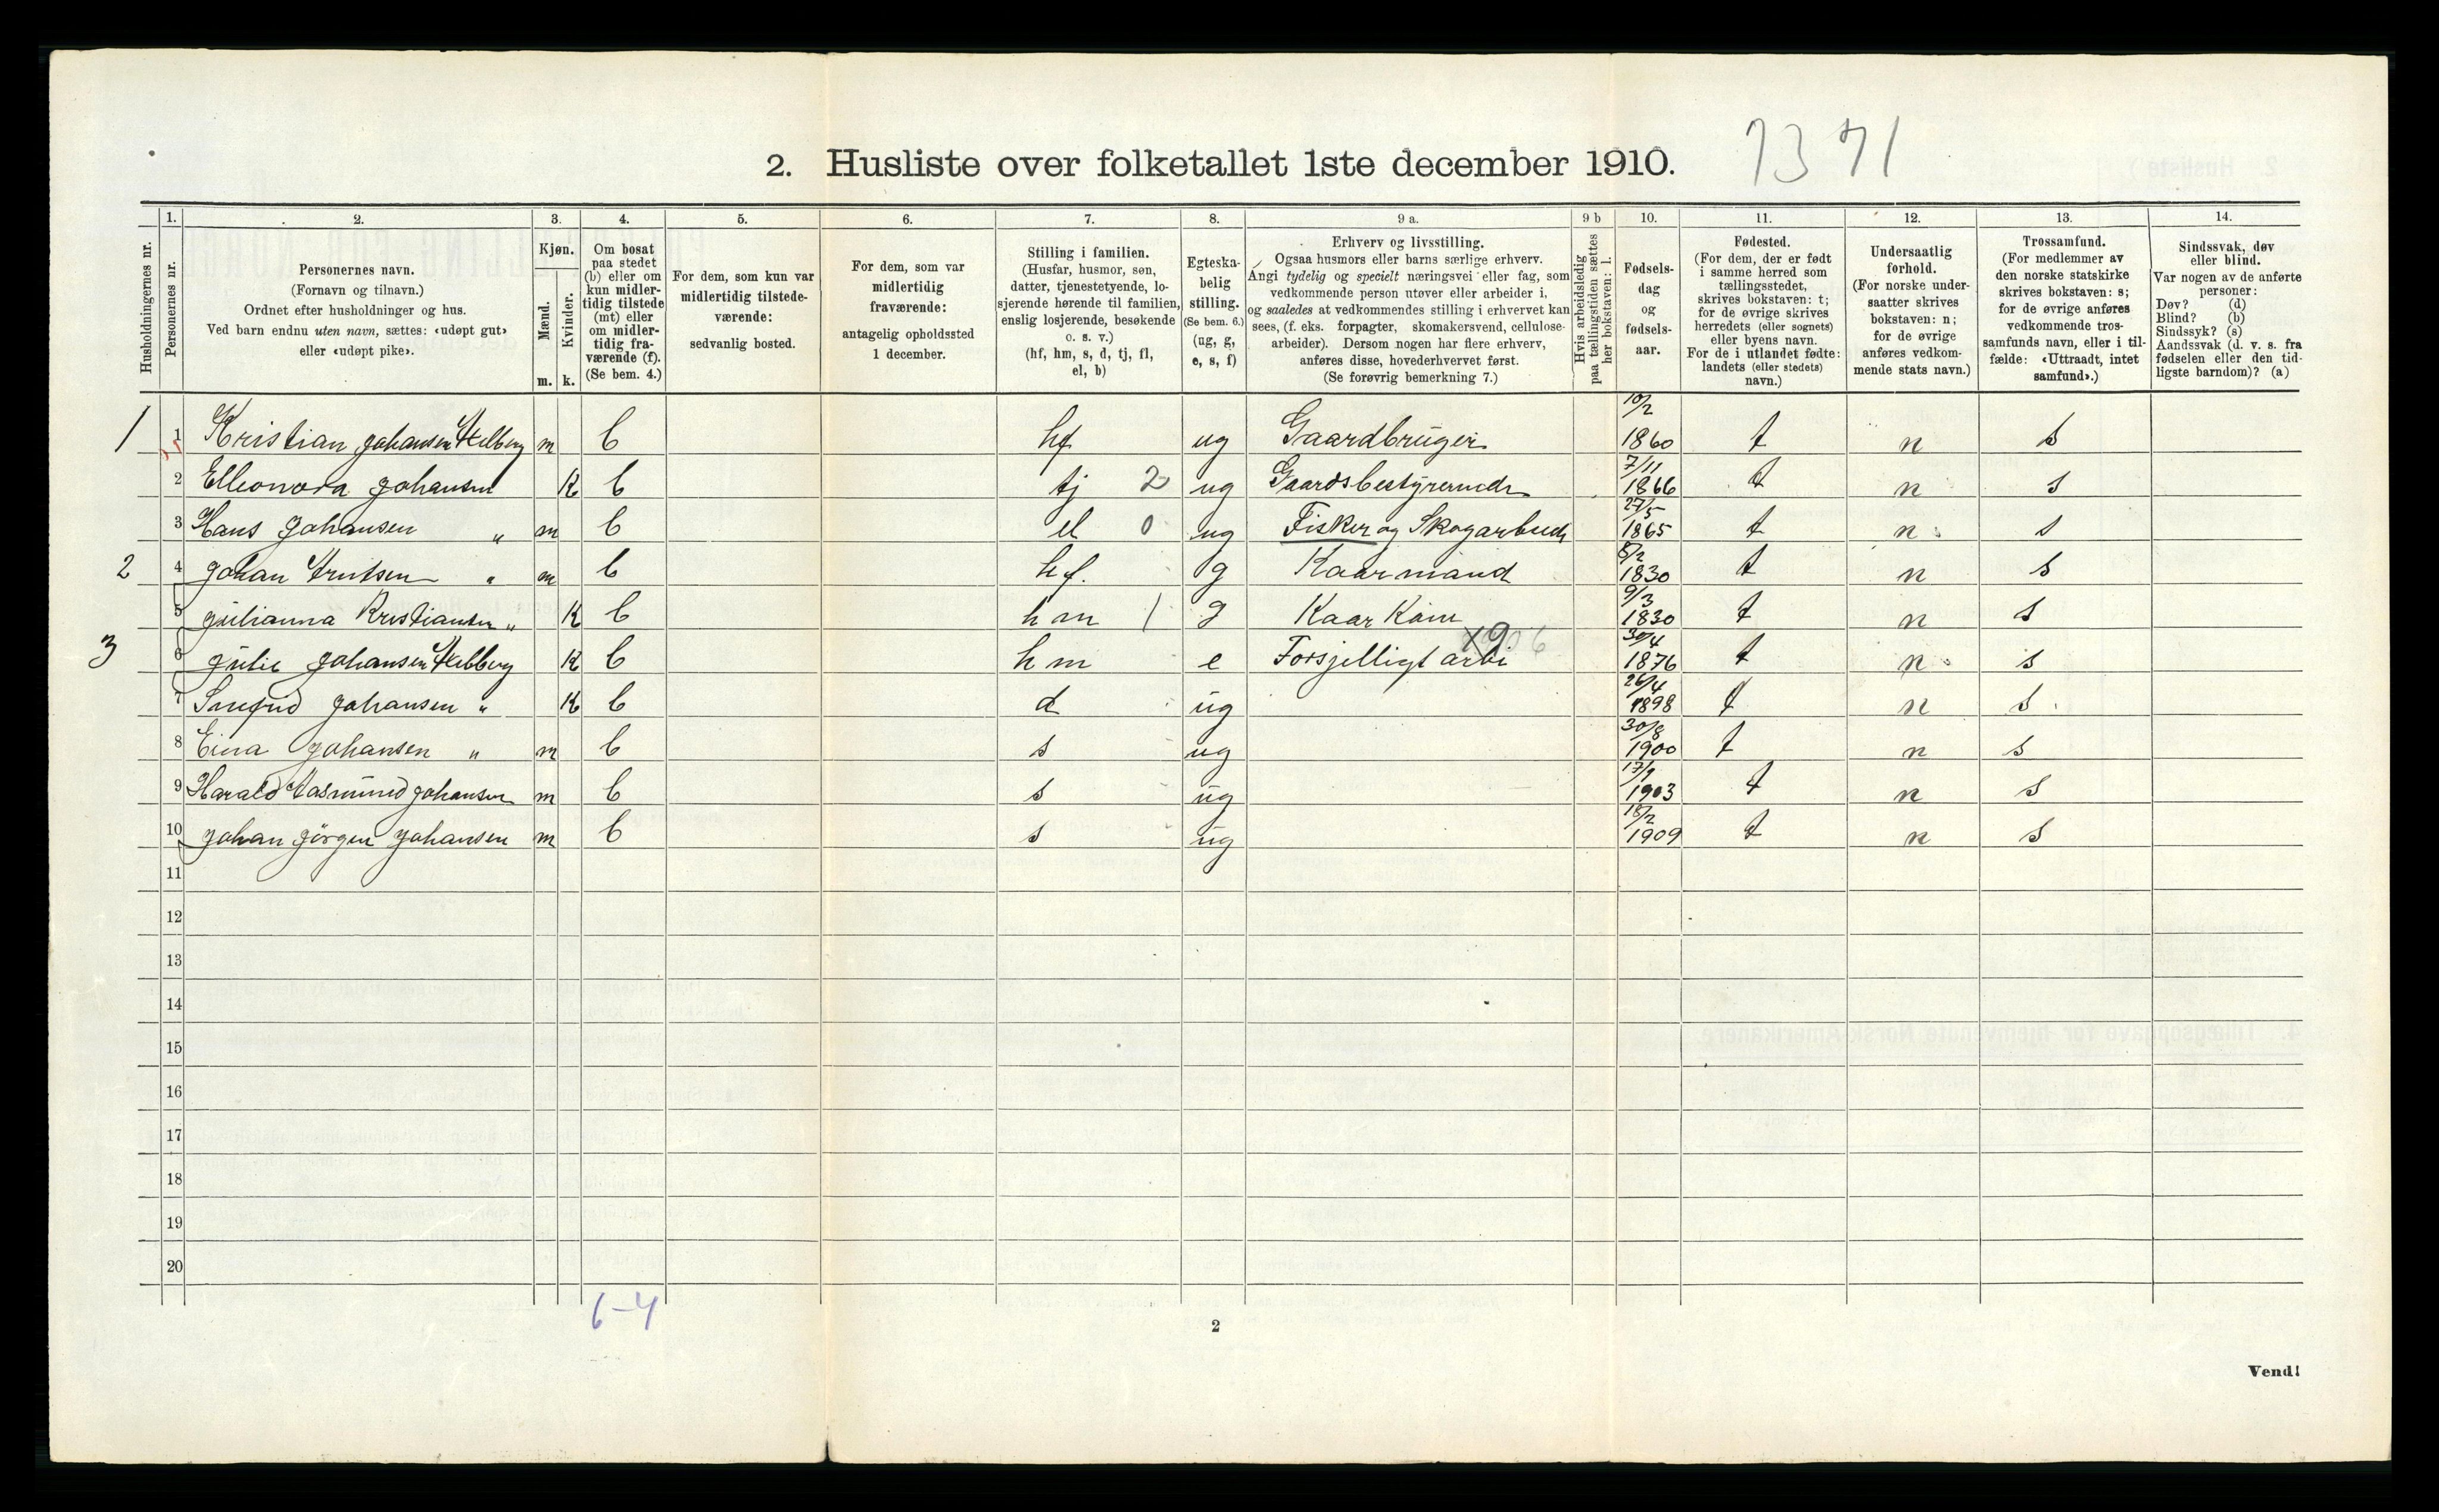 2. Husliste over folketallet 1ste december 1910. 1371
1. 2. 3. 4. 5. 6. 7. 8. 9 a. 9 b 10. 11. 12. 13. 14.
Husholdningernes nr.
Personernes nr.
Personernes navn.
(Fornavn og tilnavn.)
Ordnet efter husholdninger og hus.
Ved barn endnu uten navn, sættes: «udøpt gut»
eller «udøpt pike».
Kjøn.
Mænd.
Kvinder.
m. k.
Om bosat
paa stedet
(b) eller om
kun midler-
tidig tilstede
(mt) eller
om midler-
tidig fra-
værende (f).
(Se bem. 4.)
For dem, som kun var
midlertidig tilstede-
værende:
sedvanlig bosted.
For dem, som var
midlertidig
fraværende:
antagelig opholdssted
1 december.
Stilling i familien.
(Husfar, husmor, søn,
datter, tjenestetyende, lo-
sjerende hørende til familien,
enslig losjerende, besøkende
o. s. v.)
(hf, hm, s, d, tj, fl,
el, b)
Egteska-
belig
stilling.
(Se bem. 6.)
(ug, g,
e, s, f)
Erhverv og livsstilling.
Ogsaa husmors eller barns særlige erhverv.
Angi tydelig og specielt næringsvei eller fag, som
vedkommende person utøver eller arbeider i,
og saaledes at vedkommendes stilling i erhvervet kan
sees, (f. eks. forpagter, skomakersvend, cellulose-
arbeider). Dersom nogen har flere erhverv,
anføres disse, hovederhvervet først.
(Se forøvrig bemerkning 7.)
Hvis arbeidsledig
paa tællingstiden sættes
her bokstaven: l.
Fødsels-
dag
og
fødsels-
aar.
Fødested.
(For dem, der er født
i samme herred som
tællingsstedet,
skrives bokstaven: t;
for de øvrige skrives
herredets (eller sognets)
eller byens navn.
For de i utlandet fødte:
landets (eller stedets)
navn.)
Undersaatlig
forhold.
(For norske under-
saatter skrives
bokstaven: n;
for de øvrige
anføres vedkom-
mende stats navn.)
Trossamfund.
(For medlemmer av
den norske statskirke
skrives bokstaven: s;
for de øvrige anføres
vedkommende tros-
samfunds navn, eller i til-
fælde: «Uttraadt, intet
samfund».)
Sindssvak, døv
eller blind.
Var nogen av de anførte
personer:
Døv? (d)
Blind? (b)
Sindssyk? (s)
Aandssvak (d. v. s. fra
fødselen eller den tid-
ligste barndom)? (a)
1 1 Kristian Johansen m b hf ug Gaardbruger 10/2 1860 t n s
2 Elleonora Johansen K b tj 2 ug Gaardsbestyrerinde 7/11 1866 t n s
3 Hans Johansen " m b el 0 ug Fisker og Skogarbeid 27/5 1865 t n s
2 4 Johan " m b hf. g Kaarmand 8/2 1830 t n s
5 Julianna Kristiansen " K b hm 1 g Kaar Kone 9/3 1830 t n s
3 6 Julie Johansen K b hm e Forsjelligt arbi 30/4 1876 t n s
7 Johansen " K b d ug 26/4 1898 t n s
8 Johansen " m b s ug 30/8 1900 t n s
9 Harald Johansen m b s ug 17/9 1903 t n s
10 Johan Jörgen Johansen m b s ug 18/2 1909 t n s
11
12
13
14
15
16
17
18
19
20
6-4
2
Vend!